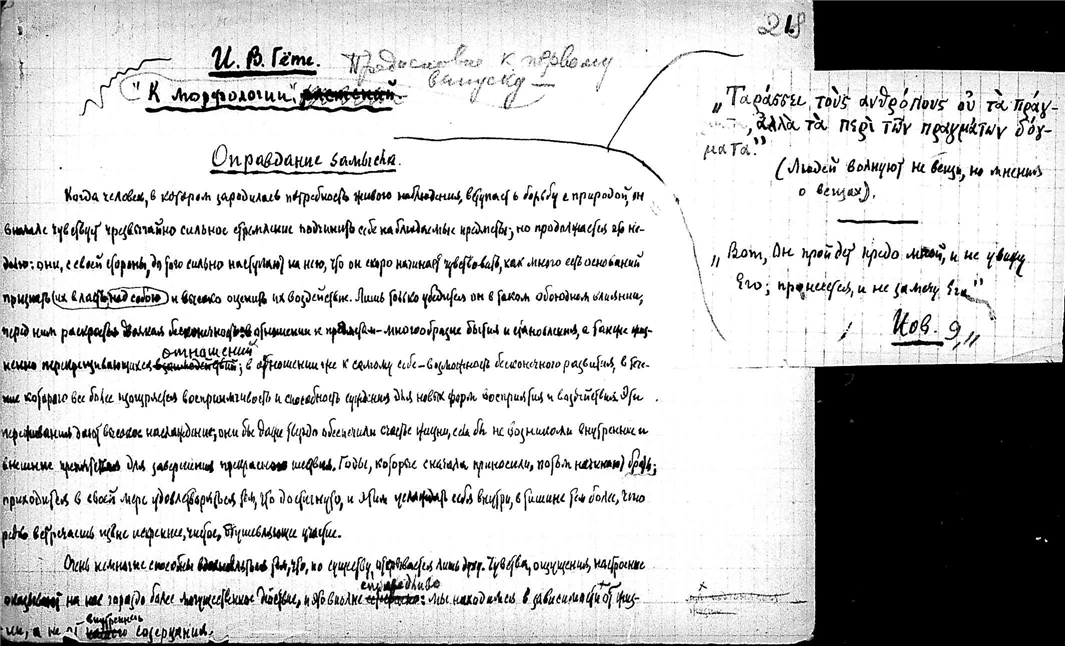 218
И. В. Гёте.
Предисловие к первому
выпуску
"К морфологии"
Оправдание замысла.
Когда человек, в котором зародилась потребность живого наблюдения, вступает в борьбу с природой, он
вначале чувствует чрезвычайно сильное стремление подчинить себе наблюдаемые предметы; но продолжается это не-
долго: они, с своей стороны, до того сильно наступают на него, что он скоро начинает чувствовать, как много есть оснований
признать их власть над собою и высоко оценить их воздействие. Лишь только убедится он в таком обоюдном влиянии,
перед ним раскроется двоякая бесконечность: в отношении к предметам – многообразие бытия и становления, а также жиз-
ненно перекрещивающихся отношений; в отношении же к самому себе – возможность бесконечного развития, в тече-
ние которого все более изощряется восприимчивость и способность суждения для новых форм восприятия и воздействия. Эти
переживания дают высокое наслаждение, они бы даже твердо обеспечили счастье жизни, если бы не возникали внутренние и
внешние препятствия для завершения прекрасного шествия. Годы, которые сначала приносили, потом начинают брать;
приходится в своей мере удовлетворяться тем, что достигнуто, и этим услаждать себя внутри, в тишине тем более, что
редко встречаешь извне искреннее, чистое, одушевляющее участие.
Очень немногие способны тем, что, по существу, открывается лишь духу. Чувства, ощущения, настроение
оказывают на нас гораздо более могущественное действие, и это вполне справедливо: мы находимся в зависимости от жиз-
ни, а не от внутреннего созерцания.
„Ταράσσει τοὺς ἀνθρόπους οὐ τὰ πράγ-
ματα, ἀλλὰ τὰ περὶ τῶν πραγμάτων δόγ-
ματα."
(Людей волнуют не вещи, но мнения
о вещах).
„Вот, Он пройдет предо мной, и не увижу
Его; пронесется, и не замечу Его"
Иов. 9,,